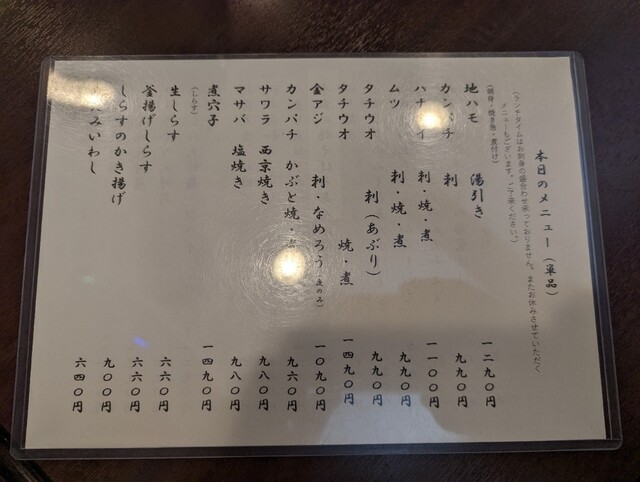 本日のメニュー(単品)
(ランチタイムはお刺身の盛合わせ承っておりません。またお休みさせていただく
メニューもございます。ご了承ください。)
(刺身・焼き魚・煮付け)
地ハモ 湯引き 一二九〇円
カンパチ 刺 九九〇円
ハナ 刺・焼・煮 一一〇〇円
ムツ 刺・焼・煮 九九〇円
タチウオ 刺(あぶり) 九九〇円
タチウオ 焼・煮 一四九〇円
金アジ 刺・なめろう(夜のみ) 一〇九〇円
カンパチ かぶと焼・ 九六〇円
サワラ 西京焼き 九八〇円
マサバ 塩焼き 九八〇円
煮穴子 一四九〇円
(しらす)
生しらす 六六〇円
釜揚げしらす 六六〇円
しらすのかき揚げ 九〇〇円
みいわし 六四〇円